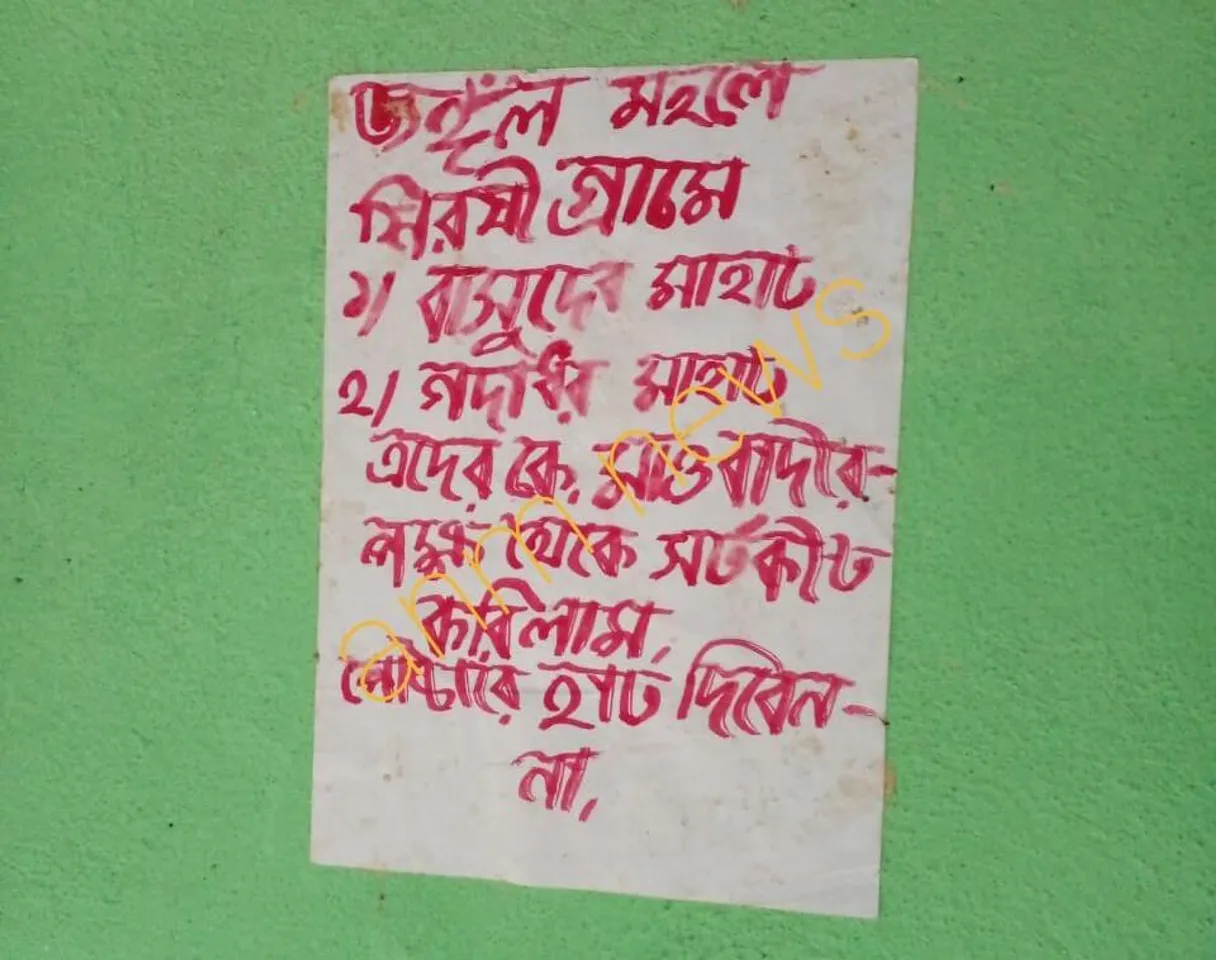 জঙ্গল মহলে
শিরষী গ্রামে
১/ বাসুদেব মাহাত
২/ গদাধর মাহাত
এদের কে, মাওবাদীর-
লক্ষ থেকে সর্তকীত
করিলাম,
পোষ্টারে হাত দিবেন-
না,
ann news